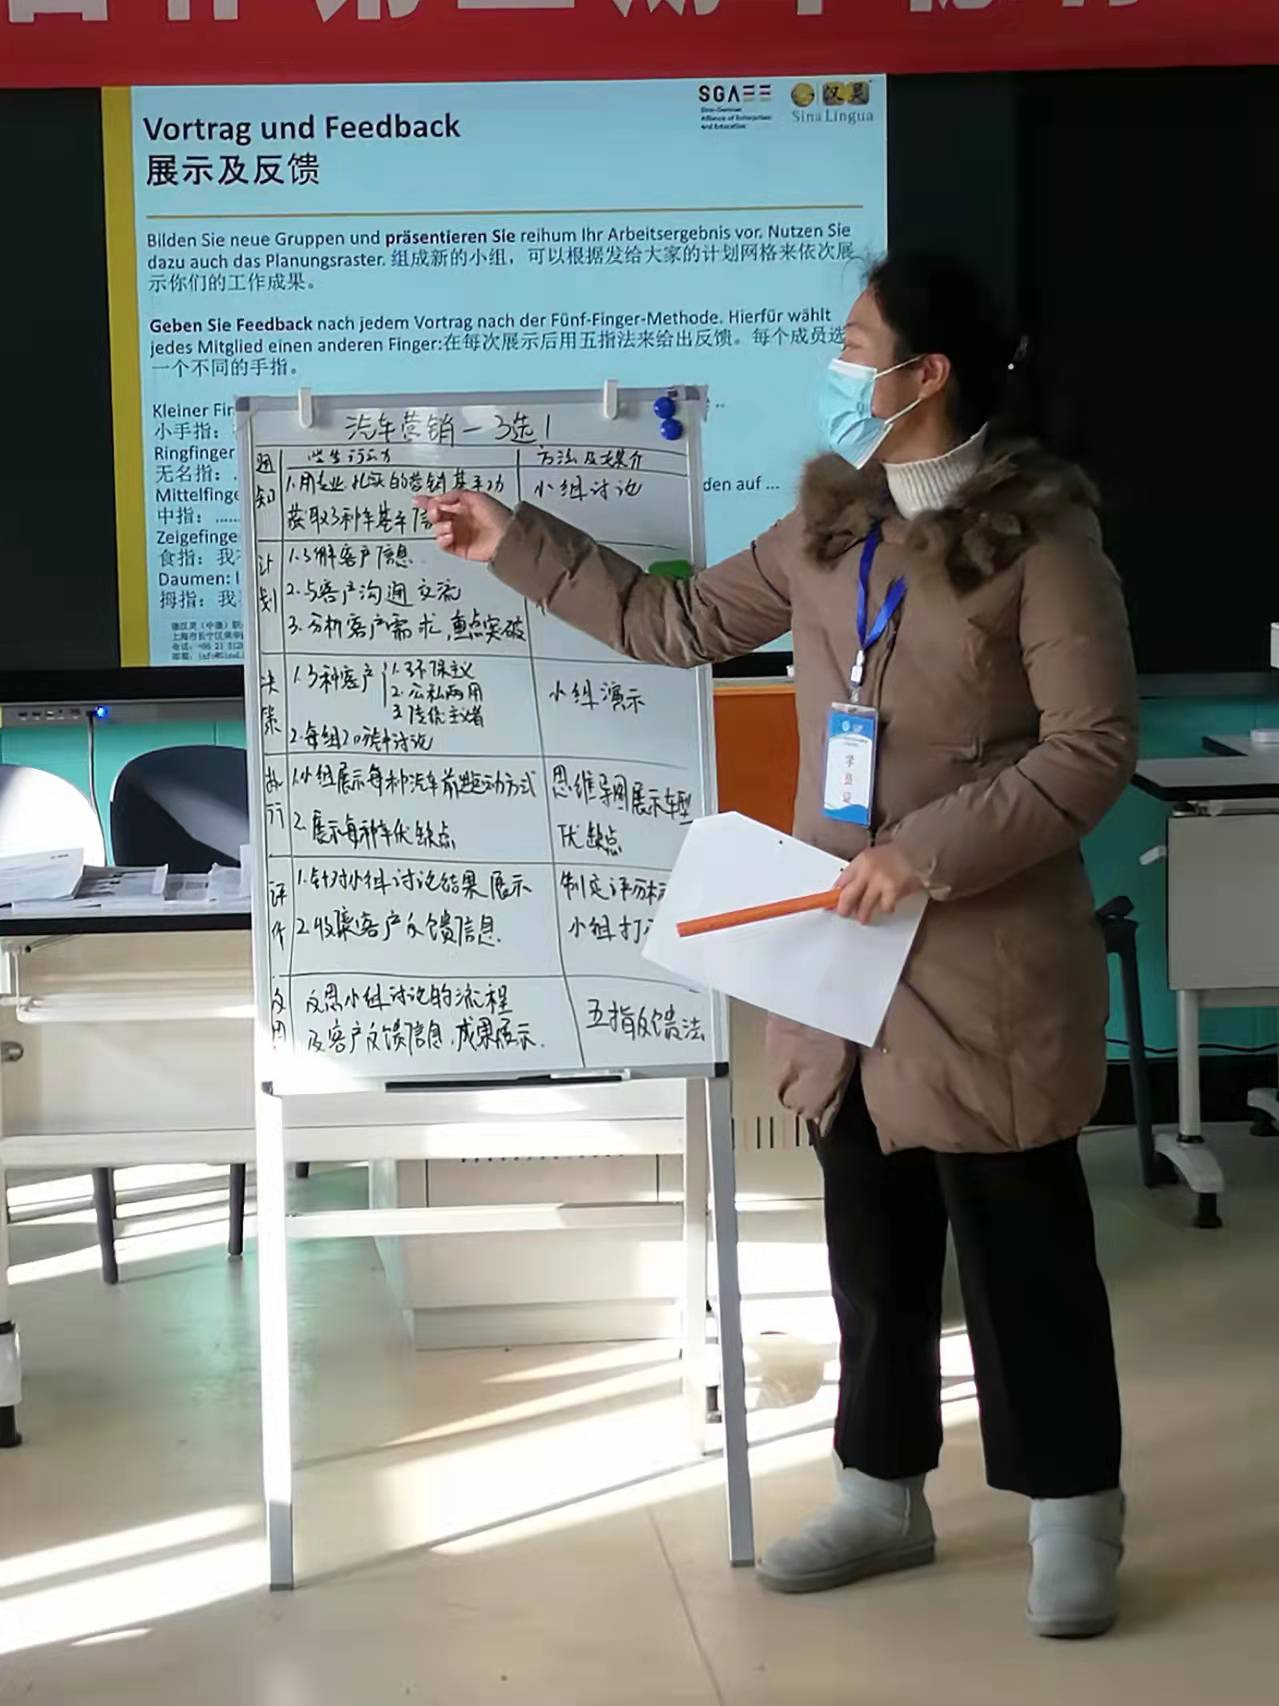 SGAEE
Sino-German
Alliance of Enterprises
and Education
汉灵
Sina Lingua
Vortrag und Feedback
展示及反馈
Bilden Sie neue Gruppen und präsentieren Sie reihum Ihr Arbeitsergebnis vor. Nutzen Sie
dazu auch das Planungsraster. 组成新的小组，可以根据发给大家的计划网格来依次展
示你们的工作成果。
Geben Sie Feedback nach jedem Vortrag nach der Fünf-Finger-Methode. Hierfür wählt
jedes Mitglied einen anderen Finger:在每次展示后用五指法来给出反馈。每个成员选
一个不同的手指。
Kleiner
小手指：
Ringfinger
无名指：
den auf ...
中指：......
食指：我
Daumen:
拇指：我
汽车营销—3选1
学生行动
方法及媒介
通知
1.用专业、扎实的营销基本功
获取3种车基本
小组讨论
计划
1.了解客户信息
2.与客户沟通交流
3.分析客户需求，重点突破
决策
1.3种客户
1.环保主义
2.公私两用
3.传统主义者
2.每组20分钟讨论
小组演示
执行
1.小组展示每种汽车前进驱动方式
2.展示每种车优缺点
思维导图展示车型
优缺点
评价
1.针对小组讨论结果展示
2.收集客户反馈信息
制定评分标
小组打
反思
反思小组讨论的流程
及客户反馈信息，成果展示.
五指反馈法
学员证